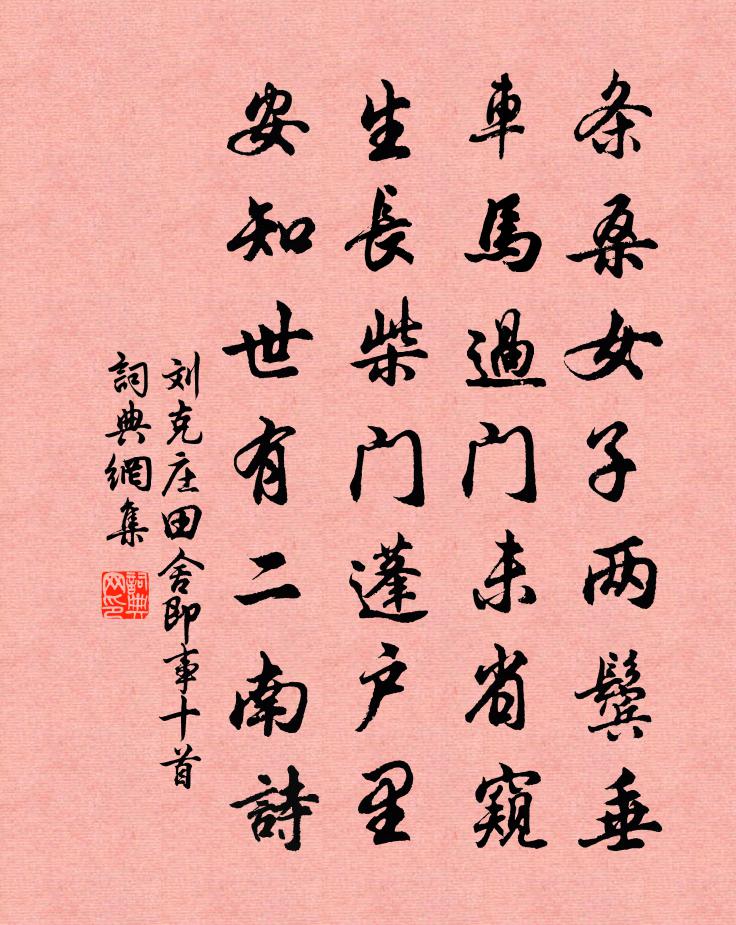 条桑女子两鬓垂
車馬過门未省窺
生長柴门蓬户里
安知世有二南詩
刘克庄田舍即事十首
詞典網集
詞典网印